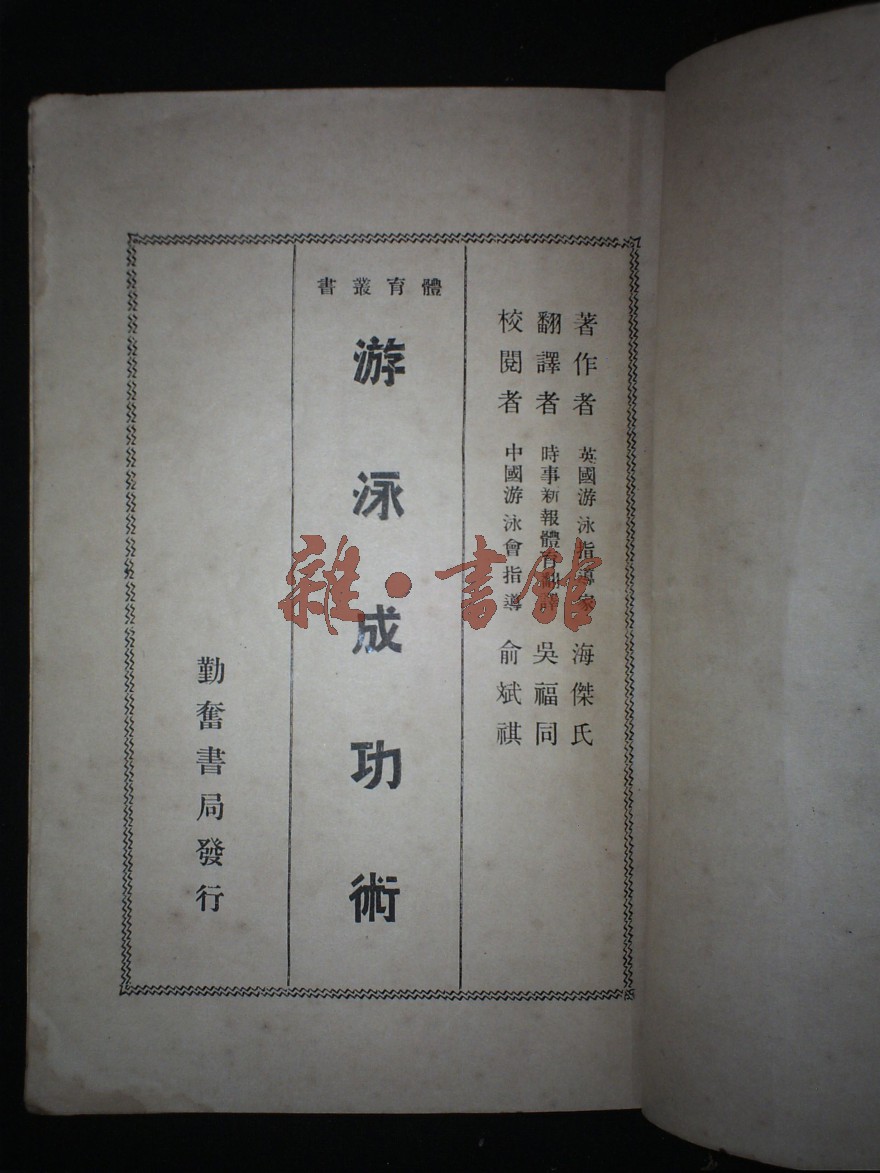 著作者 英國游泳指導家 海傑氏
翻譯者 時事新報體育翻譯 吳福同
校閱者 中國游泳會指導 俞斌祺
體育叢書
游泳成功術
勤奮書局發行
雜·書館